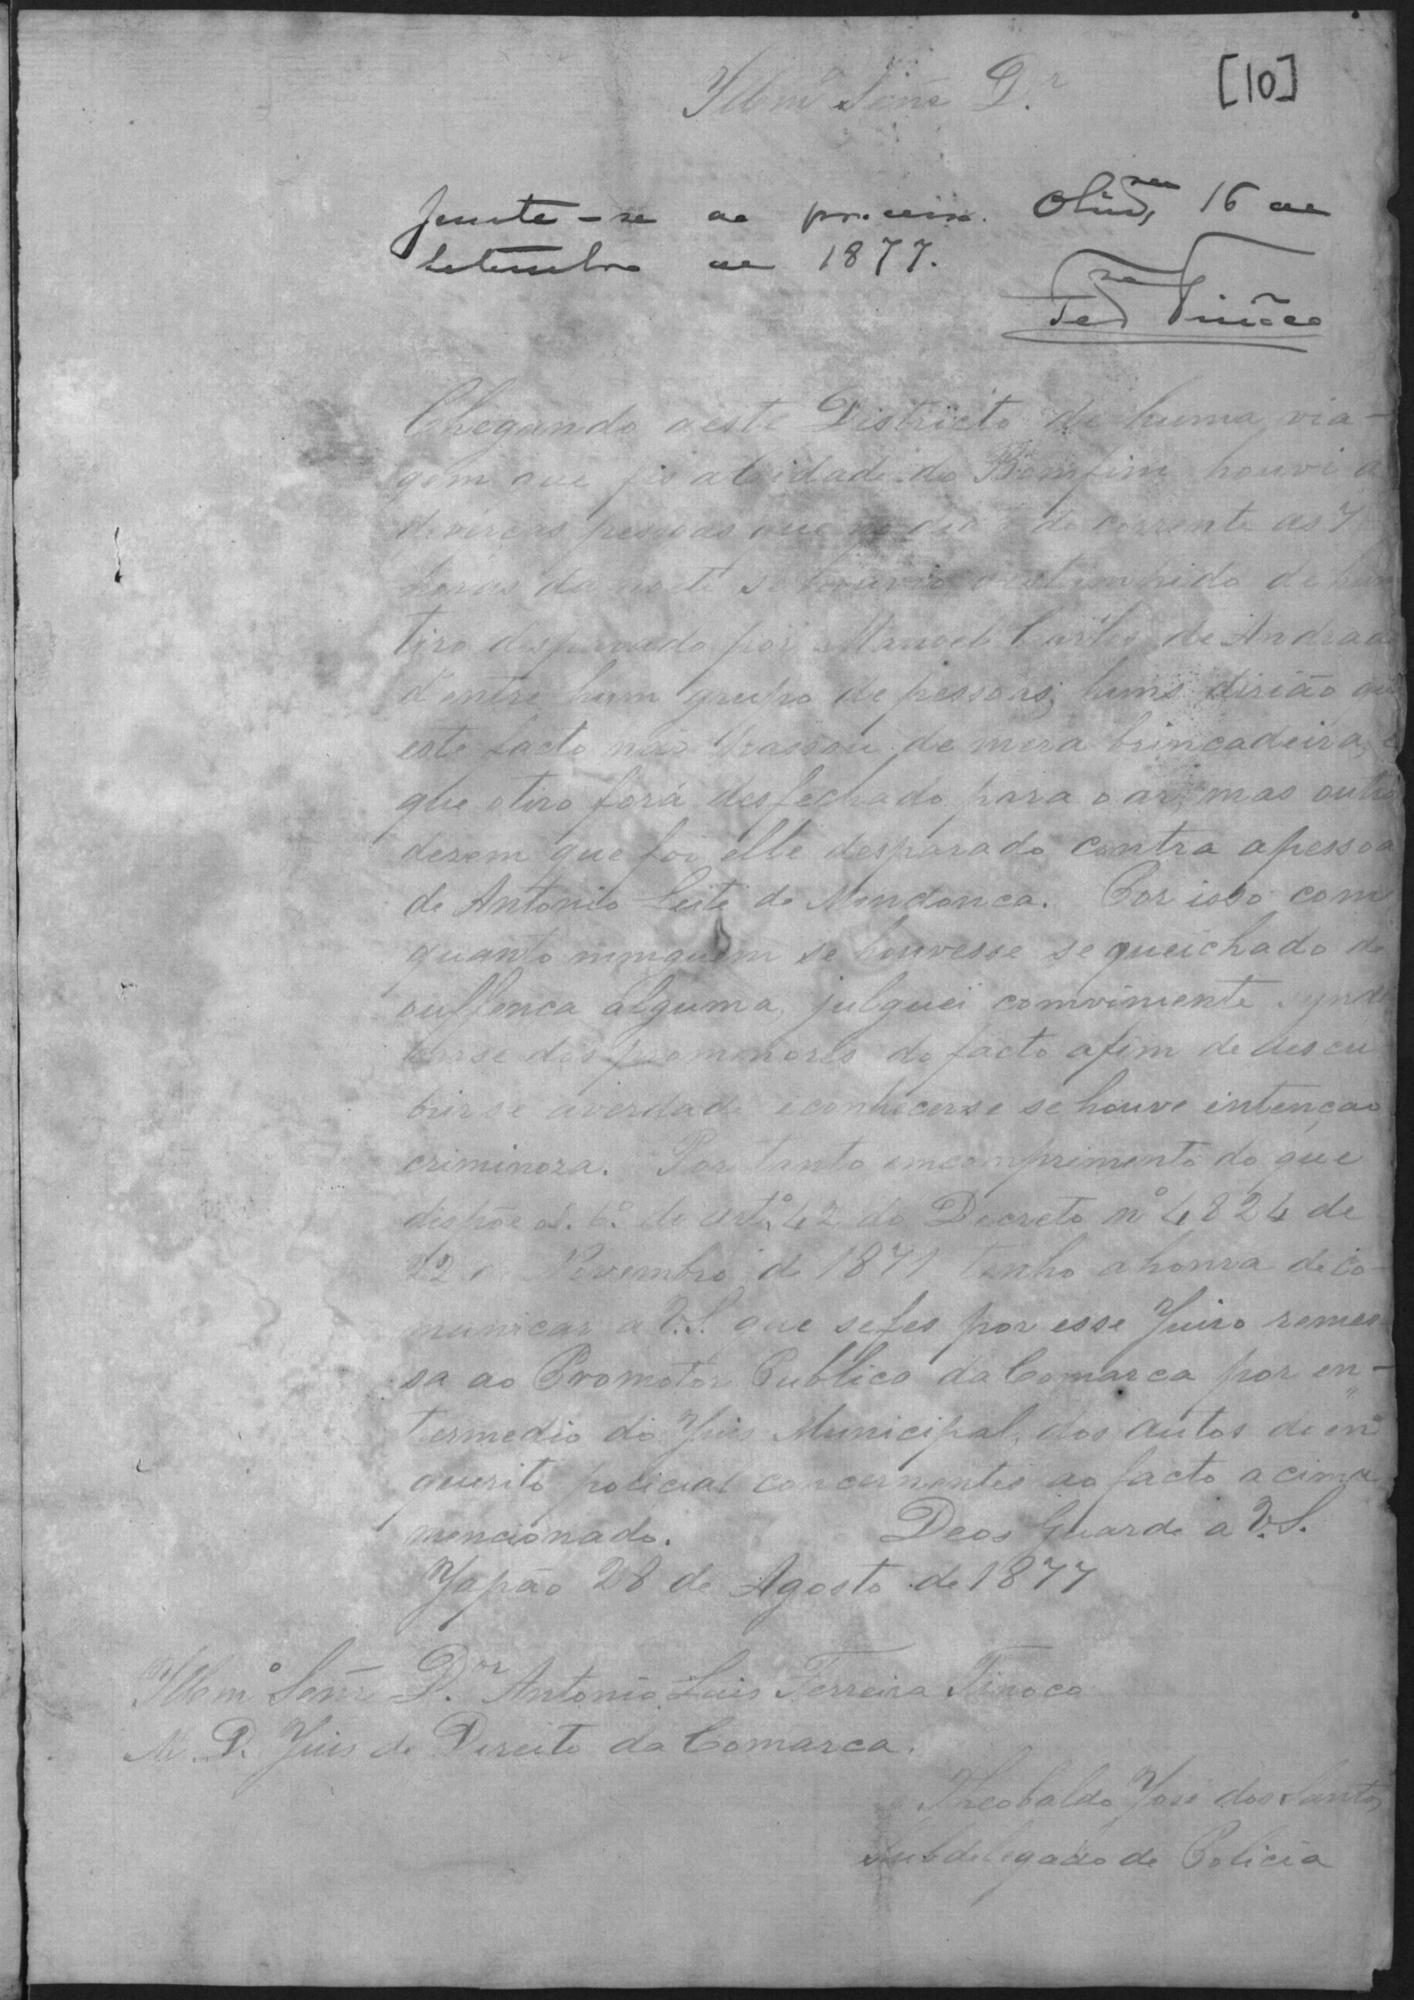 [10]
Illmº Senr Dr.
Junte-se ao processo. Olivrª, 16 de
Setembro de 1877.
Ferrª Tinôco
Chegando a este Districto de huma via-
gem que fis a Cidade do Bomfim houvi a
deverças pessoas que no dia do corrente as 7
horas da noite se houvio o estampido de hum
tiro desparado por Manoel Carlos de Andrade
d'entre hum grupo de pessoas, huns dirião que
este facto não passou de mera brincadeira, e
que o tiro fora desfechado para o ar, mas outros
dezem que foi elle desparado contra a pessoa
de Antonio Leite de Mendonca. Por isso com
quanto ninguem se houvesse se queichado de
ouffenca alguma, julguei comviniente syndi
carse dos promenores do facto afim de descu
brirse averdade econhecerse se houve intenção
criminoza. Por tanto emcomprimento do que
dispõe o §. 6º. do artº. 42 do Decreto nº 4824 de
22 de Novembro de 1871 tenho a honra de co-
municar a V.S. que sefes por esse Juizo remes
sa ao Promotor Publico da Comarca por en-
termedio do Juis Municipal, dos autos de in
querito policial concernentes ao facto acima
mencionado. Deos Guarde a V.S.
Japão 28 de Agosto de 1877
Illmº Senr. Dor. Antonio Luis Ferreira Tinoco
M. D. Juis de Direito da Comarca.
Theobaldo José dos Santos
Subdelegado de Policia